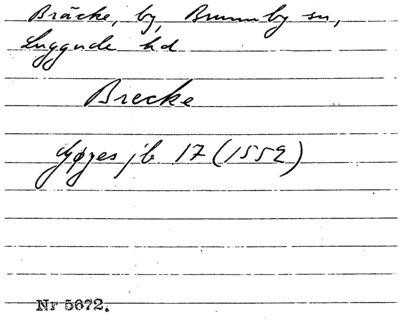 Bräcke, by, Brunnby sn,
Luggude hd
Brecke
Gøyes jb 17 (1552)
Nr 5672.